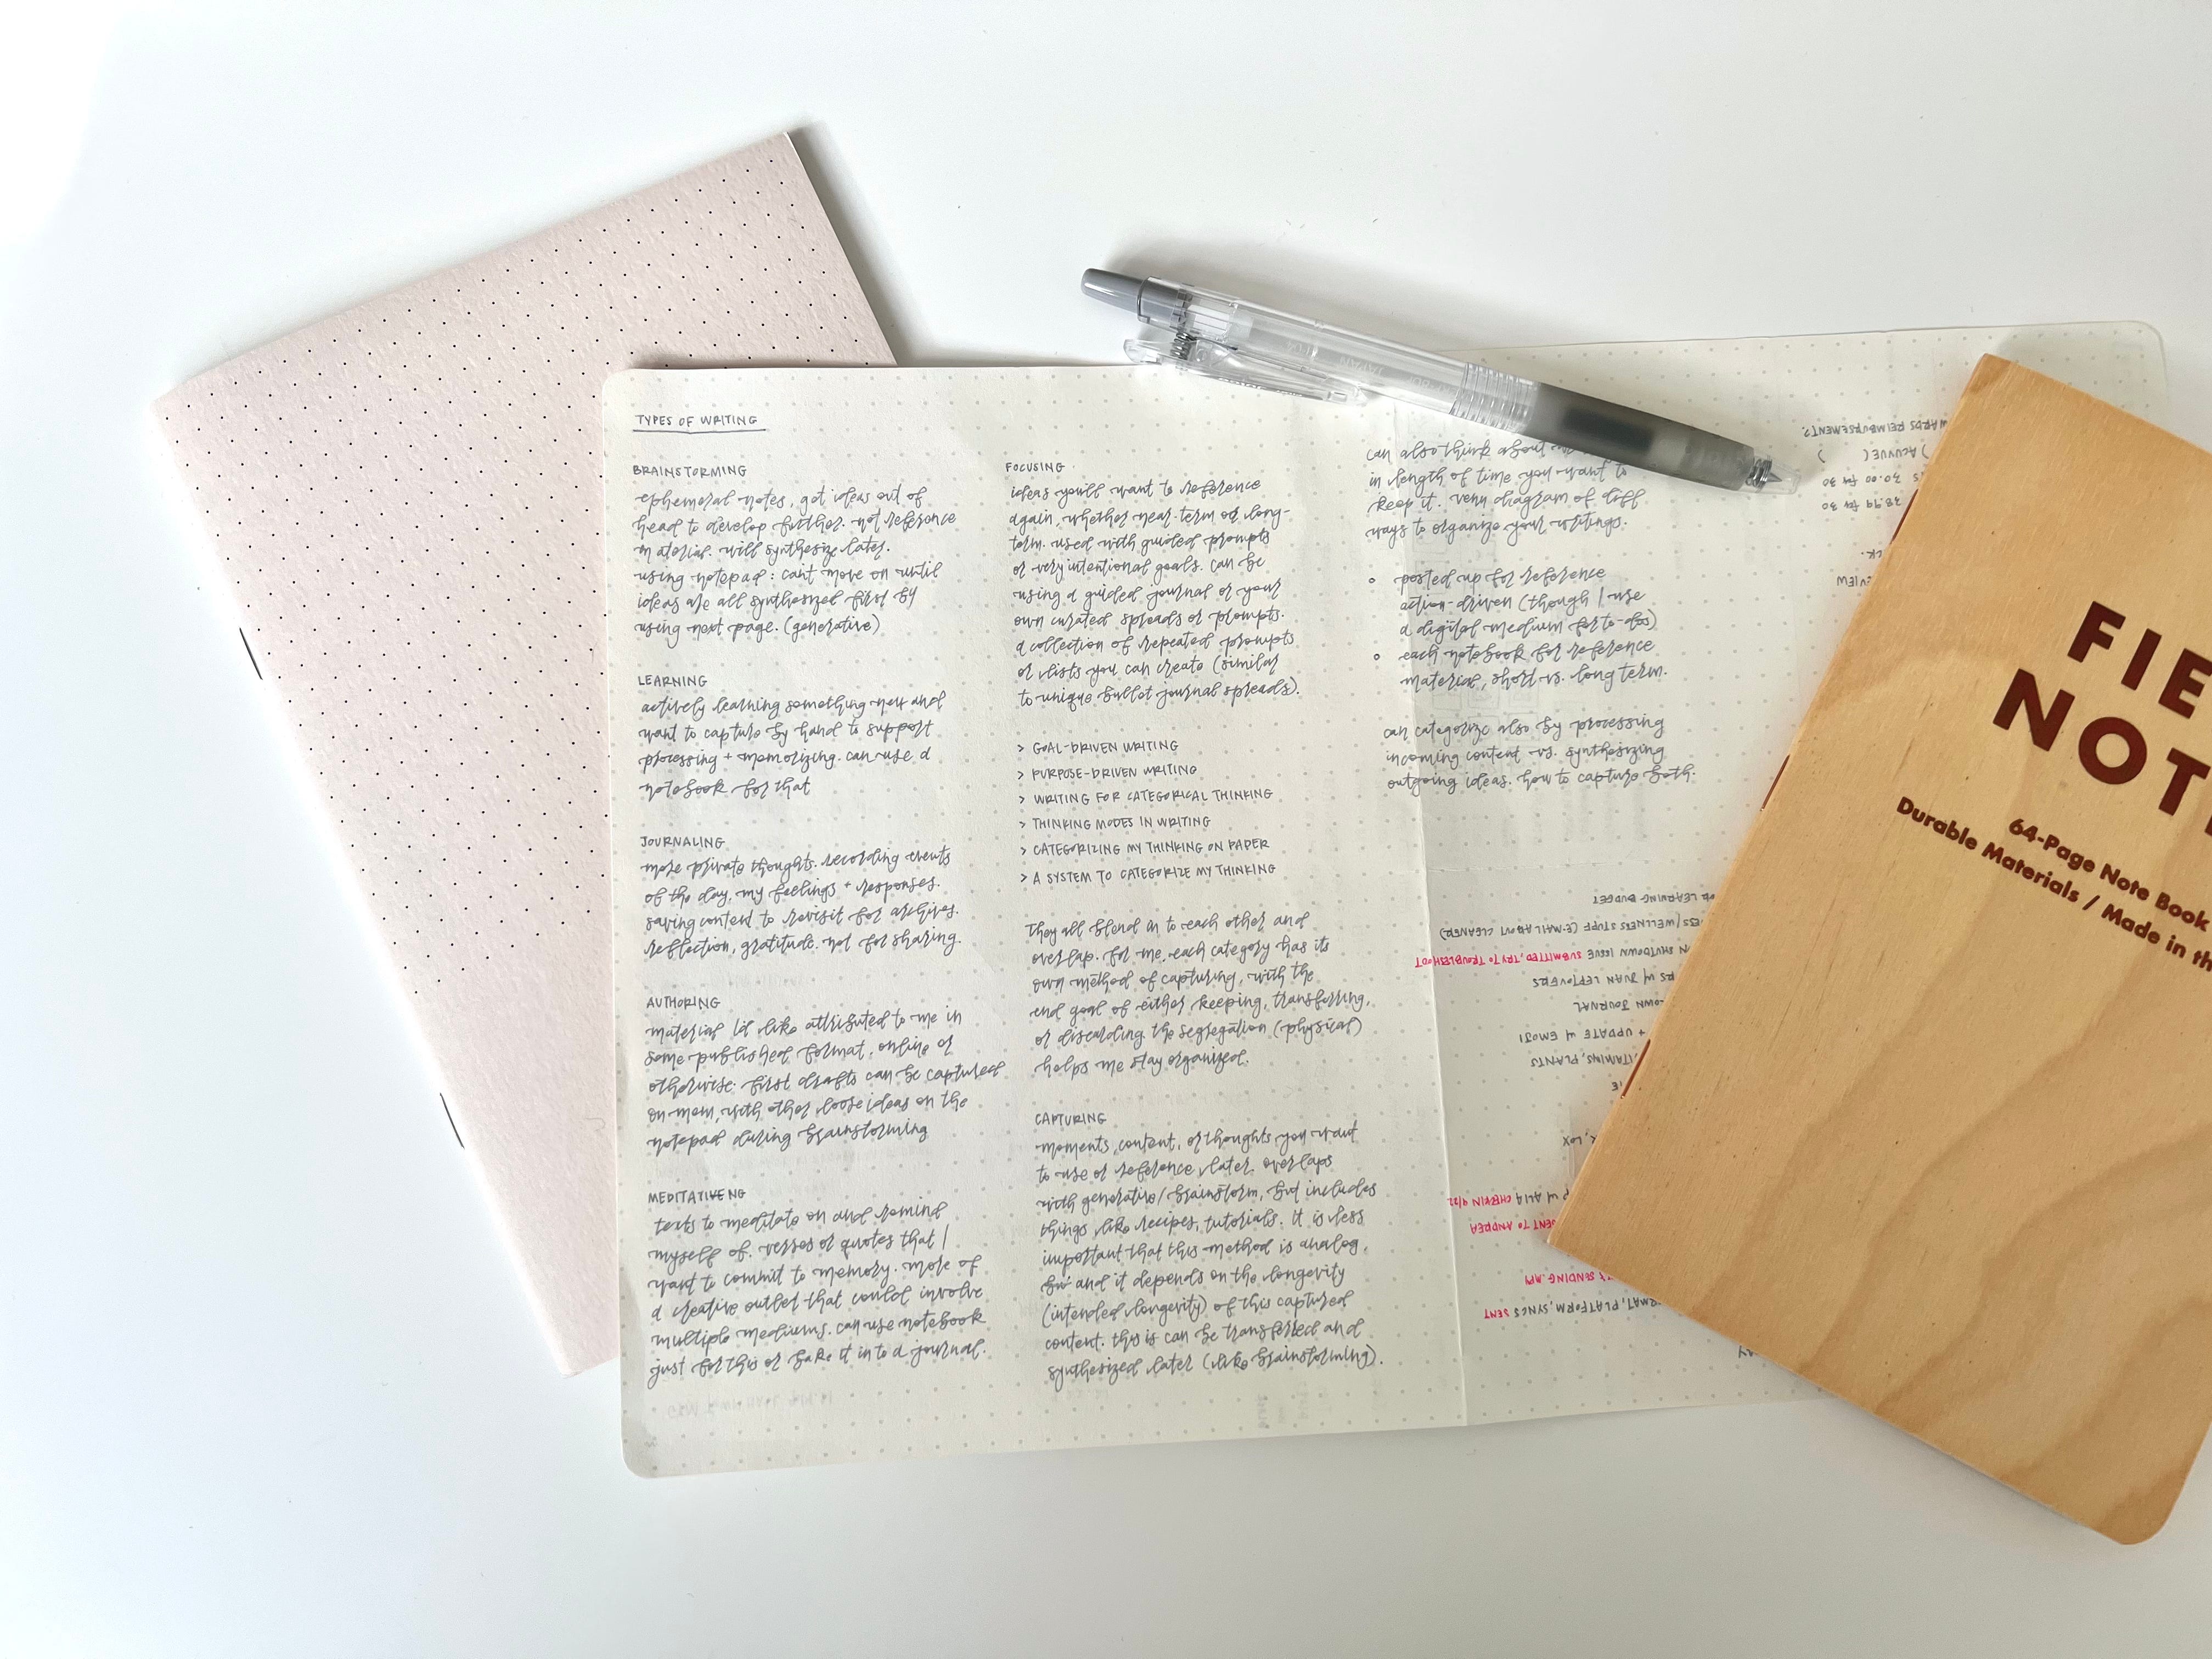 TYPES OF WRITING
BRAINSTORMING
ephemeral notes, get ideas out of
head to develop further. not reference
material. will synthesize later.
using notepad: can't move on until
ideas are all synthesized first by
using next page. (generative)
LEARNING
actively learning something new and
want to capture by hand to support
processing + memorizing. can use a
notebook for that
JOURNALING
more private thoughts. recording events
of the day, my feelings + responses.
saving content to revisit for archives.
reflection, gratitude. not for sharing.
AUTHORING
material I'd like attributed to me in
some published format, online or
otherwise. first drafts can be captured
on mem, with other loose ideas on the
notepad during brainstorming
MEDITATIVENG
texts to meditate on and remind
myself of. verses or quotes that I
want to commit to memory. more of
a creative outlet that could involve
multiple mediums. can use notebook
just for this or bake it into a journal.
FOCUSING
ideas you'll want to reference
again, whether near-term or long-
term. used with guided prompts
or very intentional goals. can be
using a guided journal or your
own curated spreads or prompts.
a collection of repeated prompts
or lists you can create (similar
to unique bullet journal spreads).
> GOAL-DRIVEN WRITING
> PURPOSE-DRIVEN WRITING
> WRITING FOR CATEGORICAL THINKING
> THINKING MODES IN WRITING
> CATEGORIZING MY THINKING ON PAPER
> A SYSTEM TO CATEGORIZE MY THINKING
They all blend in to each other and
overlap. for me, each category has its
own method of capturing, with the
end goal of either keeping, transferring,
or discarding. the segregation (physical)
helps me stay organized.
CAPTURING
moments, content, or thoughts you want
to use or reference later. overlaps
with generative/brainstorm, but includes
things like recipes, tutorials. it is less
important that this method is analog,
but and it depends on the longevity
(intended longevity) of this captured
content. this is can be transferred and
synthesized later (like brainstorming).
can also think about
in length of time you want to
keep it. venn diagram of diff
ways to organize your writings.
• posted up for reference
action-driven (though I use
a digital medium for to-dos)
• each notebook for reference
material, short vs. long term.
can categorize also by processing
incoming content vs. synthesizing
outgoing ideas. how to capture both.
WARDS REIMBURSEMENT?
) ACUVUE ( )
30.00 for 30
38.99 for 30
EVIEW
LEARNING BUDGET
/WELLNESS STUFF (E-MAIL ABOUT CLEANER)
SHUTDOWN ISSUE SUBMITTED, TRY TO TROUBLESHOOT
W/ JUAN LEFTOVERS
OWN JOURNAL
+ UPDATE W/ EMOJI
ITAMINS, PLANTS
, LOX
W/ ALI @ CHECKIN 4/22
SENT TO ANDREA
SENDING
RMAT, PLATFORM, SYNCS SENT
FIE
NOT
64-Page Note Book
Durable Materials / Made in th